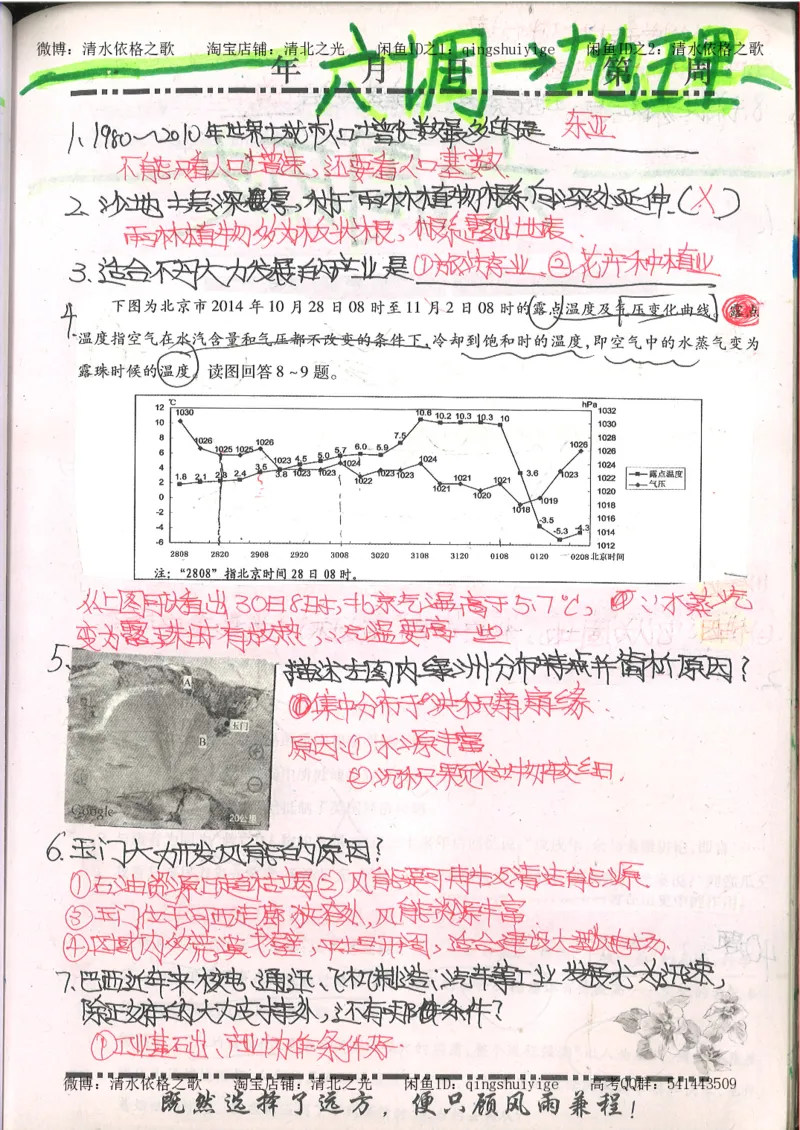 微博：清水依格之歌 淘宝店铺：清北之光 闲鱼ID之1：qingshuiyige 闲鱼ID之2：清水依格之歌
年 月 日 第 周
六调→地理
1、1980~2010年世界上城市人口增长数最多的是 东亚
不能只看人口增速，还要看人口基数
2、沙地土层深厚，利于雨林植物根系向深处延伸（X）
雨林植物多为板状根，根系露出地表．
3、适合不丹大力发展的产业是①旅游业、②花卉种植业
4
下图为北京市2014年10月28日08时至11月2日08时的露点温度及气压变化曲线。露点
温度指空气在水汽含量和气压都不改变的条件下，冷却到饱和时的温度，即空气中的水蒸气变为
露珠时候的温度。读图回答8~9题。
℃ hPa
12 10 8 6 4 2 0 -2 -4 -6
1030 1026 1025 1025 1026 1023 1023 1023 1024 1022 1023 1023 1024 1021 1021 1020 1021 1018 1019 1023 1026
1.8 2.1 2.3 2.4 3.5 3.8 4.5 5.0 5.7 6.0 5.9 7.5 10.6 10.2 10.3 10.3 10 3.6 -3.5 -5.3 -4.3
1032 1030 1028 1026 1024 1022 1020 1018 1016 1014 1012
露点温度
气压
2808 2820 2908 2920 3008 3020 3108 3120 0108 0120 0208 北京时间
注：“2808”指北京时间28日08时。
从上图可以看出30日8时，北京气温高于5.7℃，∵水蒸汽
变为露珠时有放热∴气温要高一些
5、
A
玉门
B
Google
20公里
描述左图内绿洲分布特点并简析原因？
①集中分布于洪积扇扇缘．
原因：①水源丰富
②沉积颗粒物较细．
6、玉门大力开发风能的原因？
①石油资源日趋枯竭②风能是可再生的清洁能源
③玉门位于河西走廊狭窄处，风能资源丰富
④区域内多荒漠戈壁，平坦开阔，适合建设大型风电场．
7、巴西近年来核电、通讯、飞机制造、汽车等工业发展尤为迅速，
除政府的大力支持外，还有哪些条件？
①工业基础出、产业协作条件好．
微博：清水依格之歌 淘宝店铺：清北之光 闲鱼ID：qingshuiyige 高考QQ群：541443509
既然选择了远方，便只顾风雨兼程！